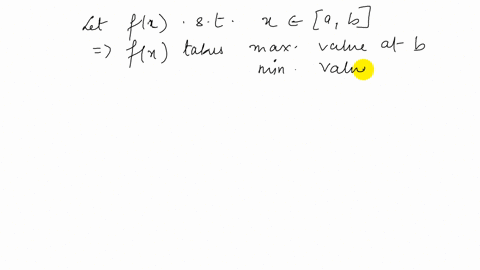 Let f(x) . s.t. x ∈ [a, b]
=> f(x) takes max. value at b
min. value